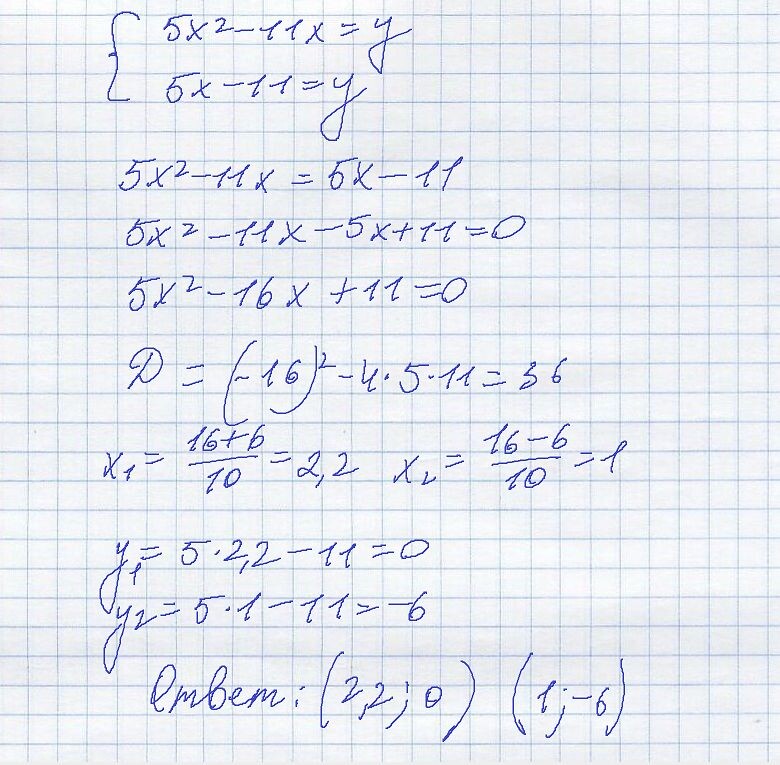 { 5x² - 11x = y
5x - 11 = y
5x² - 11x = 5x - 11
5x² - 11x - 5x + 11 = 0
5x² - 16x + 11 = 0
D = (-16)² - 4·5·11 = 36
x₁ = (16+6)/10 = 2,2 x₂ = (16-6)/10 = 1
y₁ = 5·2,2 - 11 = 0
y₂ = 5·1 - 11 = -6
Ответ: (2,2; 0) (1; -6)